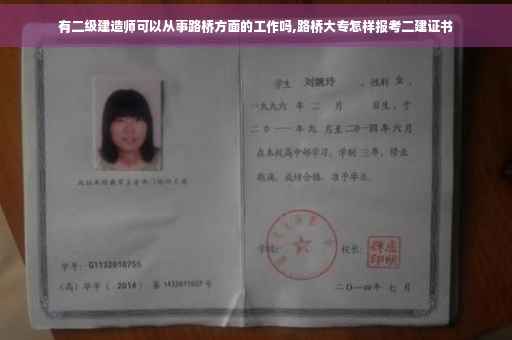 有二级建造师可以从事路桥方面的工作吗,路桥大专怎样报考二建证书
学生 刘婉玲 ,性别 女 ,
一九九六 年 二 月 日生,于
二〇一一 年 九 月至 二〇一四 年 六 月
在本校高中部学习,学制 三年,修业
期满,成绩合格,准予毕业。
学校: 校长:
学号: G1132010755
(高)毕字( 2014 )第 1432011037 号
二〇一四年 七 月